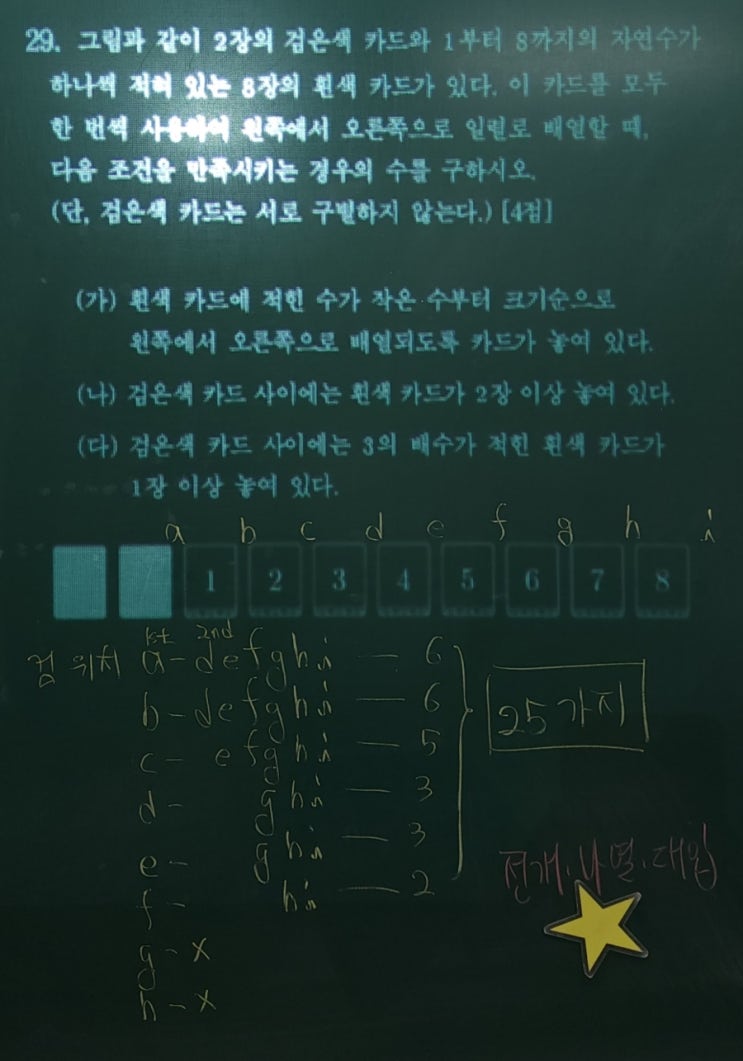 29. 그림과 같이 2장의 검은색 카드와 1부터 8까지의 자연수가
하나씩 적혀 있는 8장의 흰색 카드가 있다. 이 카드를 모두
한 번씩 사용하여 왼쪽에서 오른쪽으로 일렬로 배열할 때,
다음 조건을 만족시키는 경우의 수를 구하시오.
(단, 검은색 카드는 서로 구별하지 않는다.) [4점]
(가) 흰색 카드에 적힌 수가 작은 수부터 크기순으로
왼쪽에서 오른쪽으로 배열되도록 카드가 놓여 있다.
(나) 검은색 카드 사이에는 흰색 카드가 2장 이상 놓여 있다.
(다) 검은색 카드 사이에는 3의 배수가 적힌 흰색 카드가
1장 이상 놓여 있다.
a b c d e f g h i
1 2 3 4 5 6 7 8
1st 2nd
검 위치 a - d e f g h i — 6
b - d e f g h i — 6
25가지
c - e f g h i — 5
d - g h i — 3
e - g h i — 3
전개·나열·대입
f - h i — 2
g - x
h - x